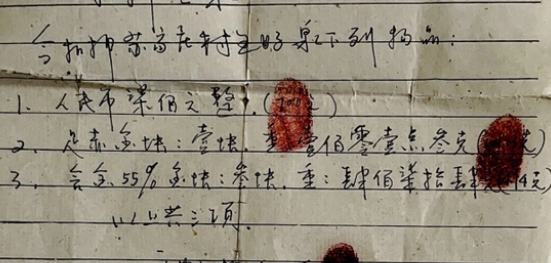 今扣押蔡芳在村全呀泉下列物品:
1. 人民币柒佰元整.(700元)
2. 足赤金块:壹块.重:壹佰零壹点叁克(
3. 含金55%金块:叁块.重:肆佰柒拾肆克(474克)
以上共三项.